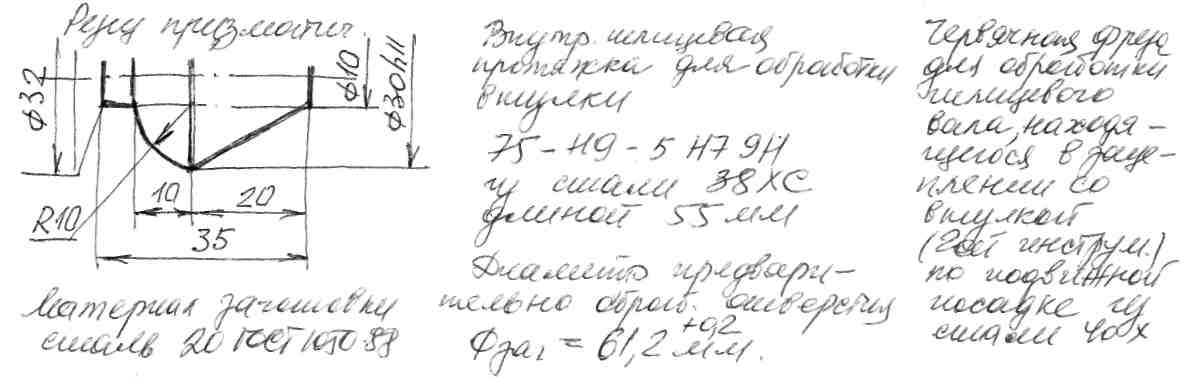 Резец призматич.
Ф32
Ф10
Ф30h11
R10
10
20
35
Материал заготовки
сталь 20 ГОСТ 1050-88
Внутр. шлицевая
протяжка для обработки
втулки
75-H9-5 H7 9H
из стали 38ХС
длиной 55 мм
Диаметр предвари-
тельно обраб. отверстия
Фзаг = 61,2 +0,2 мм.
Червячная фреза
для обработки
шлицевого
вала, находя-
щегося в заце-
плении со
втулкой
(2ой инструм.)
по подвижной
посадке из
стали 40Х